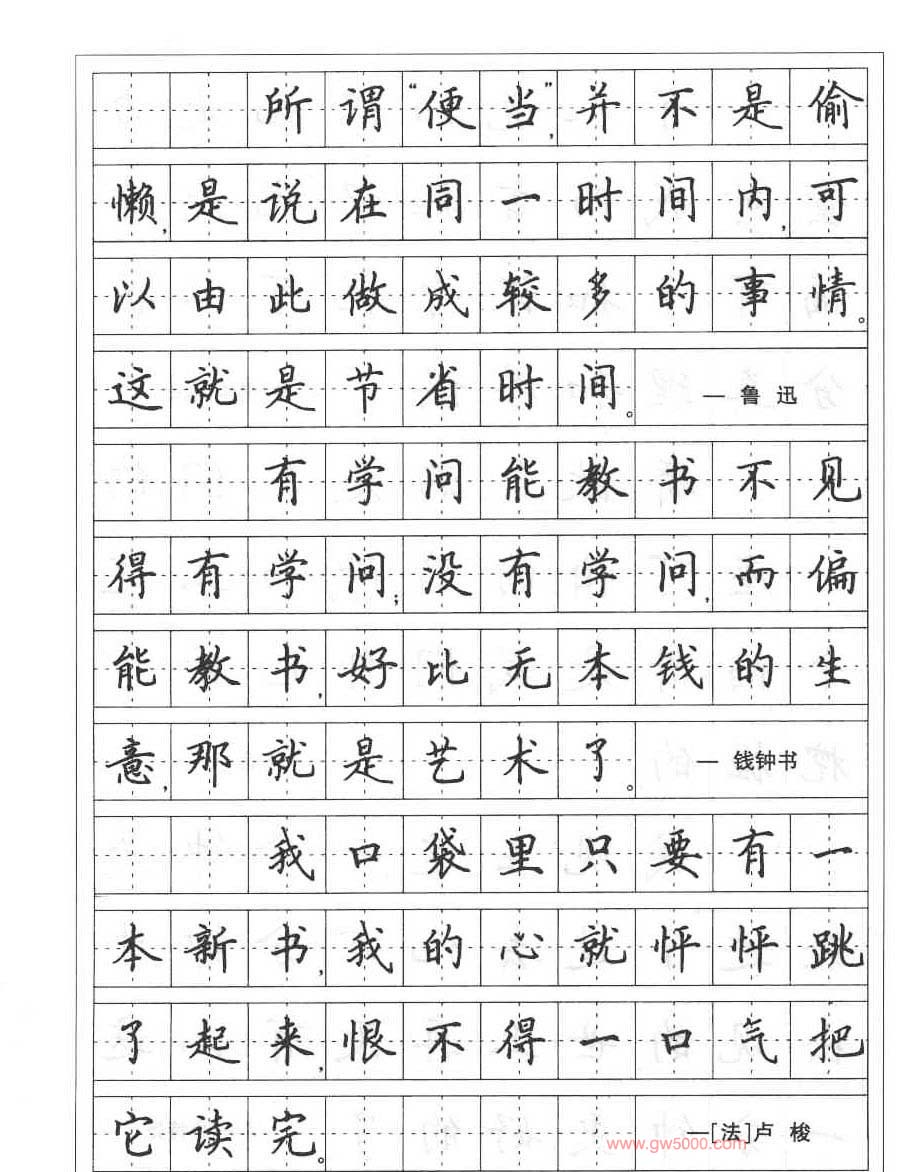 所谓“便当”,并不是偷
懒,是说在同一时间内,可
以由此做成较多的事情。
这就是节省时间。 — 鲁迅
有学问能教书不见
得有学问;没有学问,而偏
能教书,好比无本钱的生
意,那就是艺术了。 — 钱钟书
我口袋里只要有一
本新书,我的心就怦怦跳
了起来,恨不得一口气把
它读完。 —[法]卢梭
www.gw5000.com